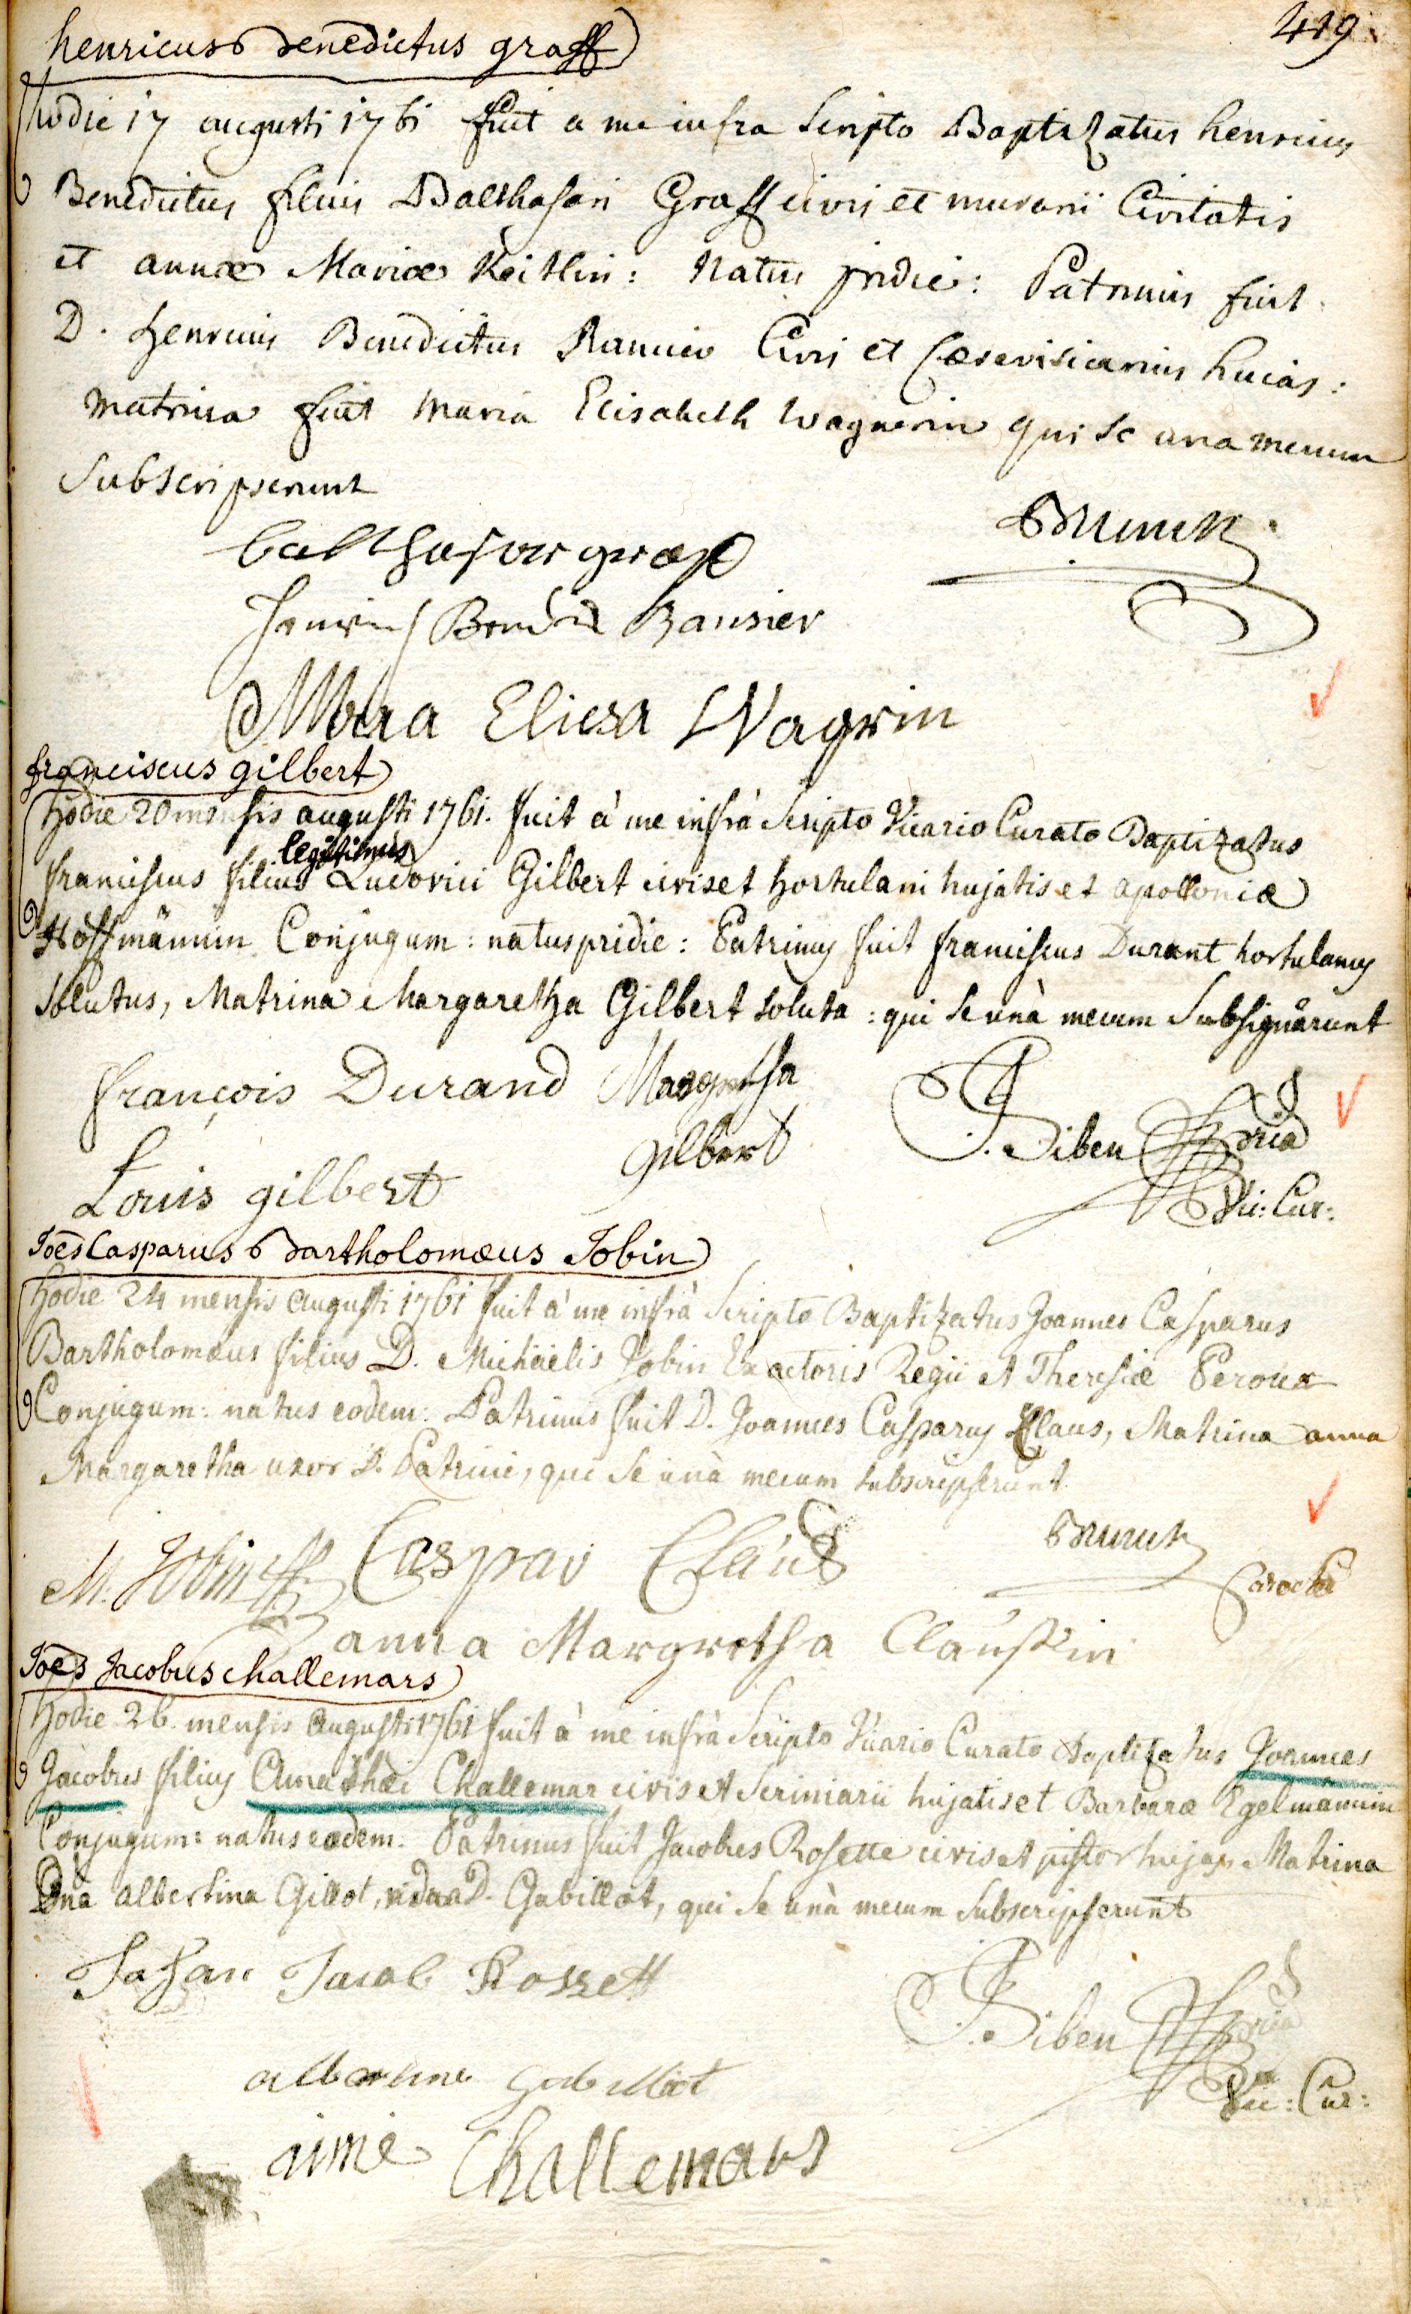 419
henricus Benedictus graff
hodie 17 augusti 1761 fuit a me infra scripto Baptizatus henricus
Benedictus filius Balthasari Graff civis et murarii Civitatis
et annæ Mariæ Keitlin: Natus pridie: Patrinus fuit
D. henricus Benedictus Civis et Cærevisiarius huias:
matrina fuit Maria Elisabeth Wagnerin qui se una mecum
Subscripserunt
balthasar graff
Brunck
Bansier
Mara Eliesa Wagrin
franciscus gilbert
hodie 20 mensis augusti 1761. fuit à me infrà Scripto Vicario Curato Baptizatus
legitimus
franciscus filius Ludovici Gilbert civis et hortulani hujatis et apolloniæ
Hoffmännin Conjugum: natus pridie: Patrinus fuit franciscus Durant hortulanus
Solutus, Matrina Margaretha Gilbert soluta: qui se unà mecum Subsignârunt
françois Durand Margretha
gilbert
Siben
Louis gilbert
Vic: Cur:
Joes Casparus Bartholomæus Jobin
hodie 24 mensis augusti 1761 fuit à me infrà Scripto Baptizatus Joannes Casparus
Bartholomæus filius D. Michäelis Jobin Exactoris Regii et Theresiæ Peroux
Conjugum: natus eodem: Patrinus fuit D. Joannes Casparus Claus, Matrina anna
Margaretha uxor D. Patrini, qui se unà mecum subscripserunt
M. Jobin Caspar Claus
Brunck
anna Margretha Claussin
Joes Jacobus challemars
hodie 26. mensis augusti 1761 fuit à me infrà Scripto Vicario Curato Baptizatus Joannes
Jacobus filius Amadhæi Challemar civis et Scriniarii hujatis et Barbaræ Egelmännin
Conjugum: natus eodem. Patrinus fuit Jacobus Rosette civis et pistor hujas Matrina
Dna albertina Gillot, vidua D. Gabillot, qui se unà mecum subscripserunt
Johan Jacob Rossett
Siben
Vic: Cur:
albertine gabillot
aimé Challemars